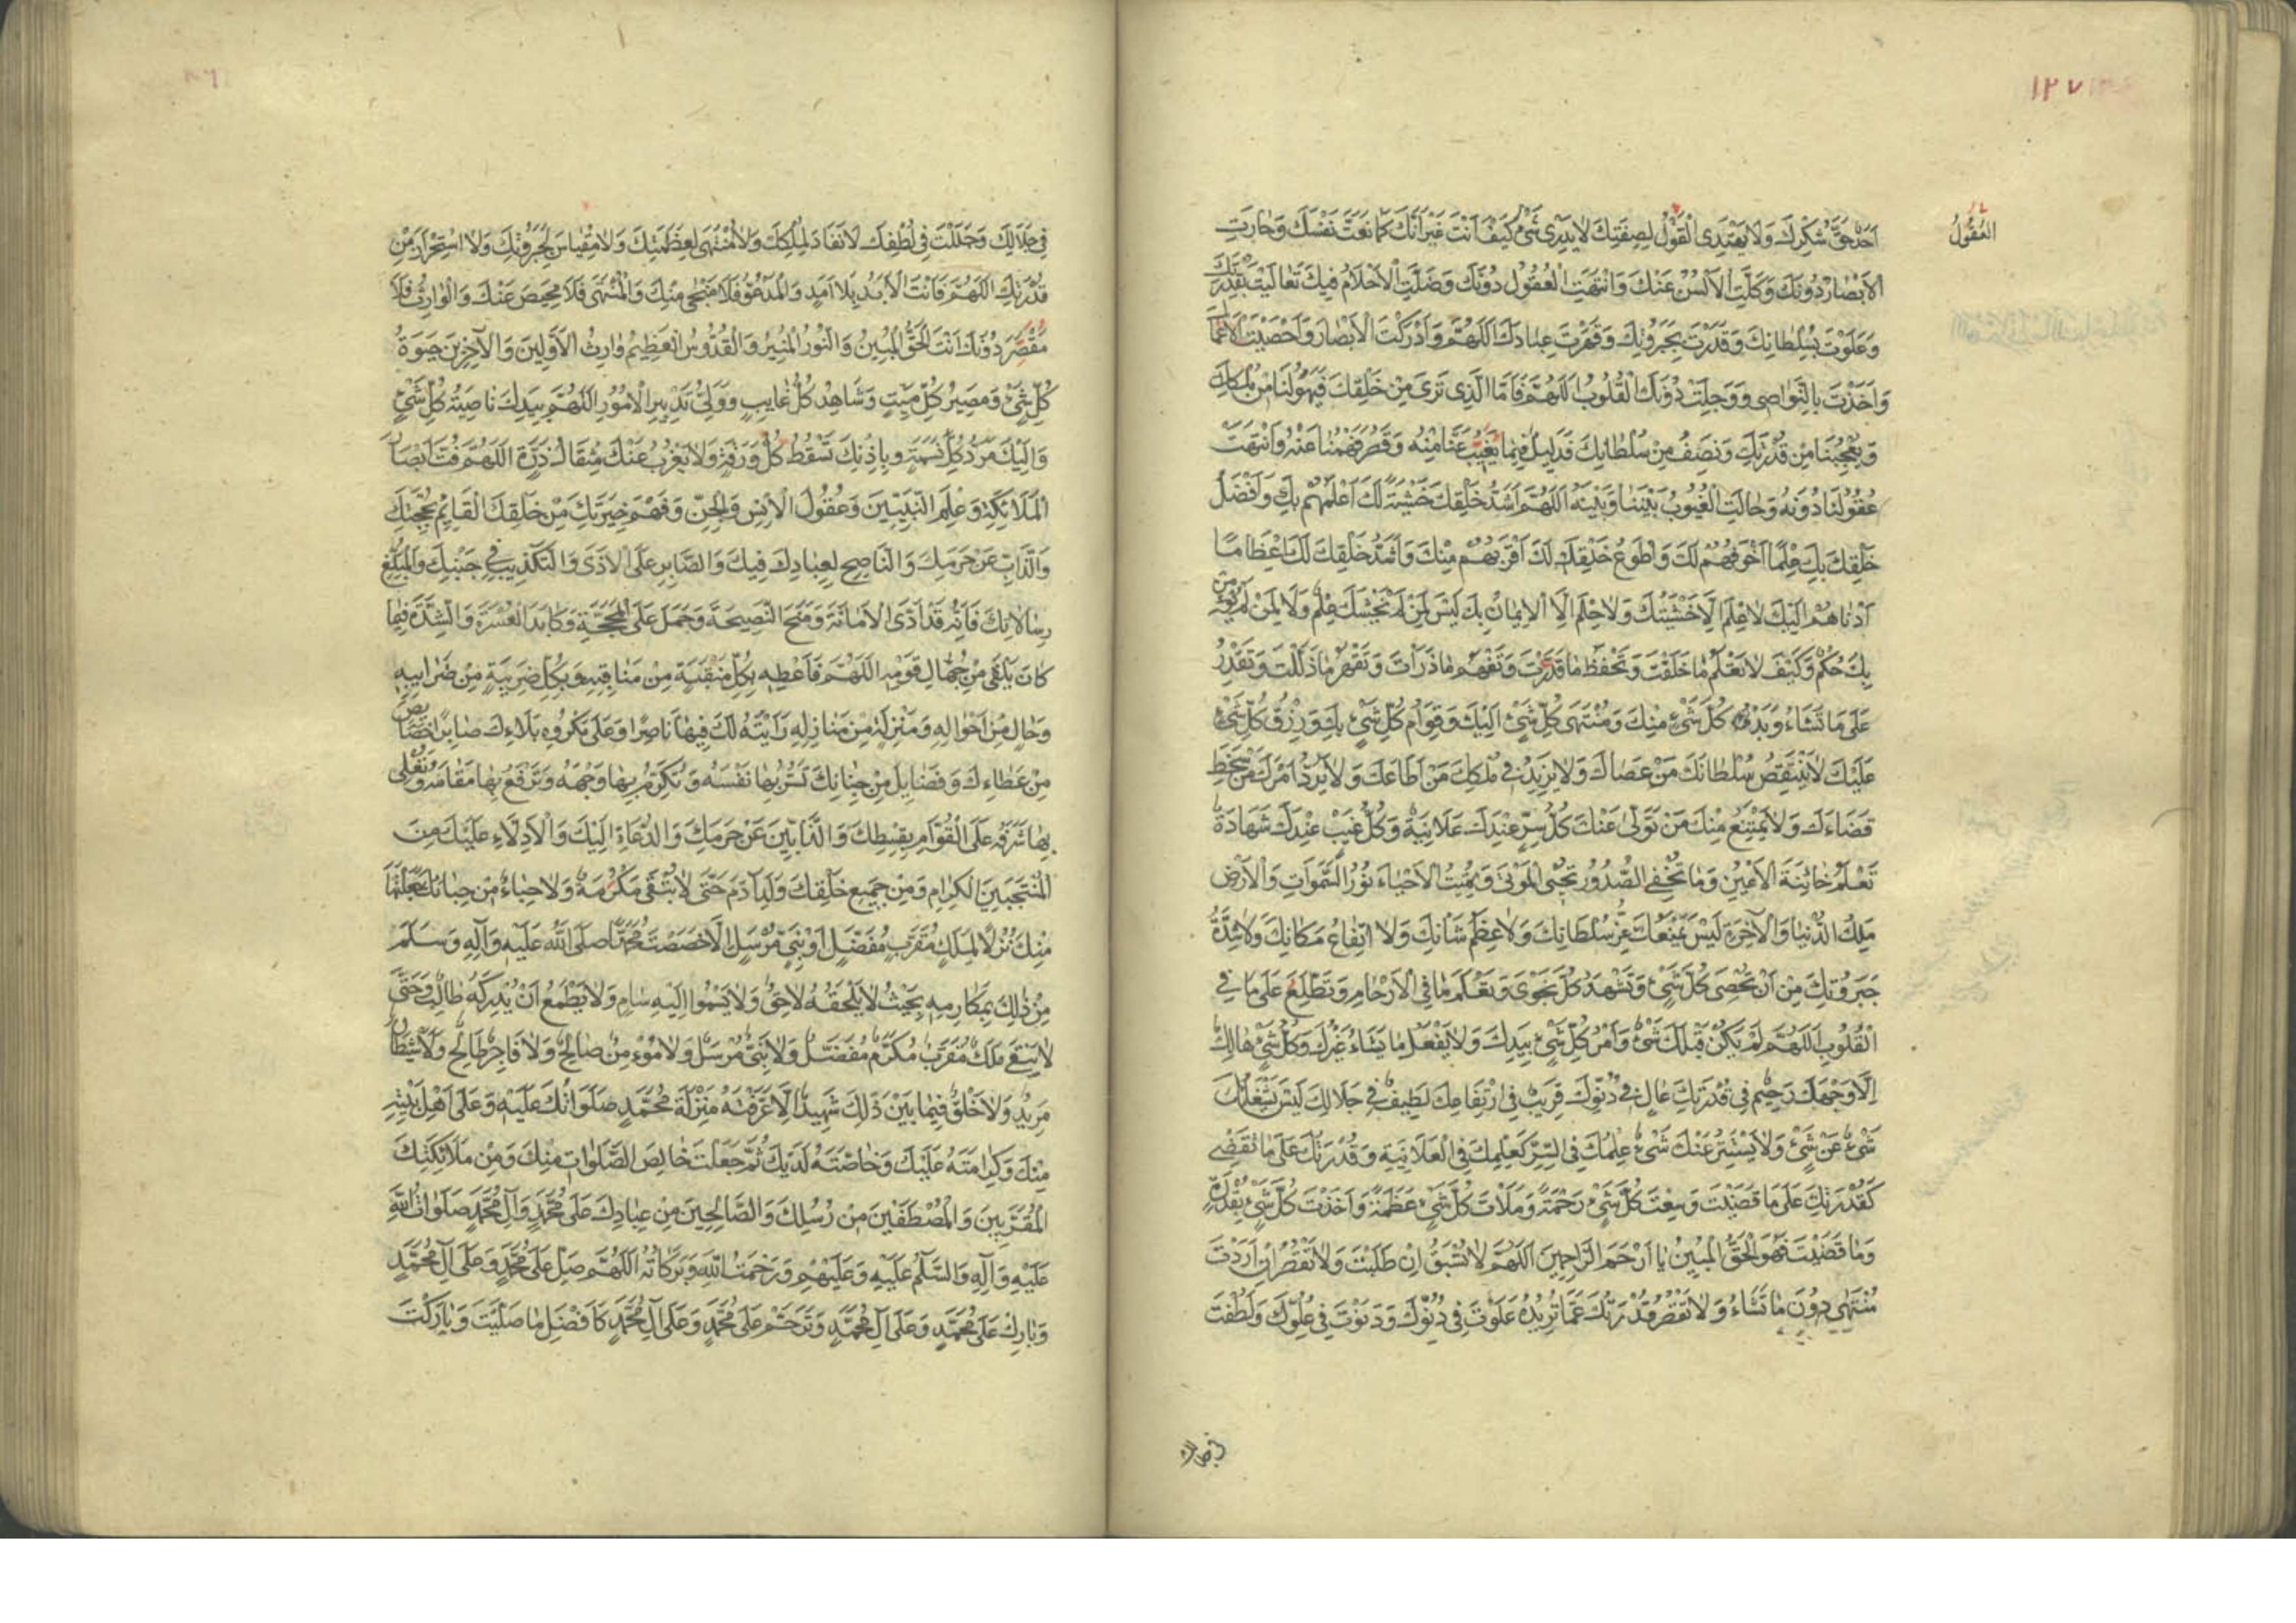 ١٢٧
العُقُولُ
اَحَدٌ حَقَّ شُكْرِكَ وَلَا يَهْتَدِى الْقَوْلُ لِصِفَتِكَ لَا يَدْرِى شَىْءٌ كَيْفَ اَنْتَ غَيْرَ اَنَّكَ كَمَا نَعَتَّ نَفْسَكَ وَحَارَتِ
الْاَبْصَارُ دُونَكَ وَكَلَّتِ الْاَلْسُنُ عَنْكَ وَانْتَهَتِ الْعُقُولُ دُونَكَ وَضَلَّتِ الْاَحْلَامُ فِيكَ تَعَالَيْتَ بِقُدْرَتِكَ
وَعَلَوْتَ بِسُلْطَانِكَ وَقَدَرْتَ بِجَبَرُوتِكَ وَقَهَرْتَ عِبَادَكَ اَللّٰهُمَّ وَاَدْرَكْتَ الْاَبْصَارَ وَاَحْصَيْتَ الْاَعْمَالَ
وَاَخَذْتَ بِالنَّوَاصِى وَوَجِلَتْ دُونَكَ الْقُلُوبُ اَللّٰهُمَّ فَاَمَّا الَّذِى نَرَى مِنْ خَلْقِكَ فَيَهُولُنَا مِنْ مُلْكِكَ
وَيُعْجِبُنَا مِنْ قُدْرَتِكَ وَنَصِفُ مِنْ سُلْطَانِكَ فَقَلِيلٌ فِيمَا يَغِيبُ عَنَّا مِنْهُ وَقَصُرَ فَهْمُنَا عَنْهُ وَانْتَهَتْ
عُقُولُنَا دُونَهُ وَحَالَتِ الْغُيُوبُ بَيْنَنَا وَبَيْنَهُ اَللّٰهُمَّ اَشَدُّ خَلْقِكَ خَشْيَةً لَكَ اَعْلَمُهُمْ بِكَ وَاَفْضَلُ
خَلْقِكَ بِكَ عِلْمًا اَخْوَفُهُمْ لَكَ وَاَطْوَعُ خَلْقِكَ لَكَ اَقْرَبُهُمْ مِنْكَ وَاَشَدُّ خَلْقِكَ لَكَ اِعْظَامًا
اَدْنَاهُمْ اِلَيْكَ لَا عِلْمَ اِلَّا خَشْيَتُكَ وَلَا حِلْمَ اِلَّا الْاِيمَانُ بِكَ لَيْسَ لِمَنْ لَمْ يَخْشَكَ عِلْمٌ وَلَا لِمَنْ لَمْ يُؤْمِنْ
بِكَ حُكْمٌ وَكَيْفَ لَا تَعْلَمُ مَا خَلَقْتَ وَتَحْفَظُ مَا قَدَّرْتَ وَتَفْهَمُ مَا ذَرَأْتَ وَتَقْهَرُ مَا ذَلَّلْتَ وَتَقْدِرُ
عَلَى مَا تَشَاءُ وَبَدْءُ كُلِّ شَىْءٍ مِنْكَ وَمُنْتَهَى كُلِّ شَىْءٍ اِلَيْكَ وَقِوَامُ كُلِّ شَىْءٍ بِكَ وَرِزْقُ كُلِّ شَىْءٍ
عَلَيْكَ لَا يَنْتَقِصُ سُلْطَانَكَ مَنْ عَصَاكَ وَلَا يَزِيدُ فِى مُلْكِكَ مَنْ اَطَاعَكَ وَلَا يَرُدُّ اَمْرَكَ مَنْ سَخِطَ
قَضَاءَكَ وَلَا يَمْتَنِعُ مِنْكَ مَنْ تَوَلّٰى عَنْكَ كُلُّ سِرٍّ عِنْدَكَ عَلَانِيَةٌ وَكُلُّ غَيْبٍ عِنْدَكَ شَهَادَةٌ
تَعْلَمُ خَائِنَةَ الْاَعْيُنِ وَمَا تُخْفِى الصُّدُورُ تُحْيِى الْمَوْتٰى وَتُمِيتُ الْاَحْيَاءَ نُورُ السَّمٰوَاتِ وَالْاَرْضِ
مَلِكُ الدُّنْيَا وَالْاٰخِرَةِ لَيْسَ يَمْنَعُكَ عِزُّ سُلْطَانِكَ وَلَا عِظَمُ شَأْنِكَ وَلَا ارْتِفَاعُ مَكَانِكَ وَلَا شِدَّةُ
جَبَرُوتِكَ مِنْ اَنْ تُحْصِىَ كُلَّ شَىْءٍ وَتَشْهَدَ كُلَّ نَجْوٰى وَتَعْلَمَ مَا فِى الْاَرْحَامِ وَتَطَّلِعَ عَلٰى مَا فِى
الْقُلُوبِ اَللّٰهُمَّ لَمْ يَكُنْ قَبْلَكَ شَىْءٌ وَاَمْرُ كُلِّ شَىْءٍ بِيَدِكَ وَلَا يَفْعَلُ مَا يَشَاءُ غَيْرُكَ وَكُلُّ شَىْءٍ هَالِكٌ
اِلَّا وَجْهَكَ رَحِيمٌ فِى قُدْرَتِكَ عَالٍ فِى دُنُوِّكَ قَرِيبٌ فِى ارْتِفَاعِكَ لَطِيفٌ فِى جَلَالِكَ لَيْسَ يَشْغَلُكَ
شَىْءٌ عَنْ شَىْءٍ وَلَا يَسْتَتِرُ عَنْكَ شَىْءٌ عِلْمُكَ فِى السِّرِّ كَعِلْمِكَ فِى الْعَلَانِيَةِ وَقُدْرَتُكَ عَلٰى مَا تَقْضِى
كَقُدْرَتِكَ عَلٰى مَا قَضَيْتَ وَسِعْتَ كُلَّ شَىْءٍ رَحْمَةً وَمَلَأْتَ كُلَّ شَىْءٍ عَظَمَةً وَاَخَذْتَ كُلَّ شَىْءٍ بِقُدْرَةٍ
وَمَا قَضَيْتَ فَهُوَ الْحَقُّ الْمُبِينُ يَا اَرْحَمَ الرَّاحِمِينَ اَللّٰهُمَّ لَا تُسْبَقُ اِنْ طَلَبْتَ وَلَا تَقْصُرُ اِنْ اَرَدْتَ
مُنْتَهٰى دُونَ مَا تَشَاءُ وَلَا تَقْصُرُ قُدْرَتُكَ عَمَّا تُرِيدُ عَلَوْتَ فِى دُنُوِّكَ وَدَنَوْتَ فِى عُلُوِّكَ وَلَطُفْتَ
فِى جَلَالِكَ وَجَلَلْتَ فِى لُطْفِكَ لَا نَفَادَ لِمُلْكِكَ وَلَا مُنْتَهٰى لِعَظَمَتِكَ وَلَا مِقْيَاسَ لِجَبَرُوتِكَ وَلَا اسْتِحْرَازَ مِنْ
قُدْرَتِكَ اللّٰهُمَّ فَاَنْتَ الْاَبَدُ بِلَا اَمَدٍ وَالْمَدْعُوُّ فَلَا مَنْجٰى مِنْكَ وَالْمُنْتَهٰى فَلَا مَحِيصَ عَنْكَ وَالْوَارِثُ فَلَا
مَقْصَرَ دُونَكَ اَنْتَ الْحَقُّ الْمُبِينُ وَالنُّورُ الْمُنِيرُ وَالْقُدُّوسُ الْعَظِيمُ وَارِثُ الْاَوَّلِينَ وَالْاٰخِرِينَ حَيٰوةُ
كُلِّ شَىْءٍ وَمَصِيرُ كُلِّ مَيِّتٍ وَشَاهِدُ كُلِّ غَايِبٍ وَوَلِىُّ تَدْبِيرِ الْاُمُورِ اَللّٰهُمَّ بِيَدِكَ نَاصِيَةُ كُلِّ شَىْءٍ
وَاِلَيْكَ مَرَدُّ كُلِّ نَسَمَةٍ وَبِاِذْنِكَ تَسْقُطُ كُلُّ وَرَقَةٍ وَلَا يَعْزُبُ عَنْكَ مِثْقَالُ ذَرَّةٍ اَللّٰهُمَّ فُتَّ اَبْصَارَ
الْمَلَائِكَةِ وَعِلْمَ النَّبِيِّينَ وَعُقُولَ الْاِنْسِ وَالْجِنِّ وَفَهْمَ خِيَرَتِكَ مِنْ خَلْقِكَ الْقَائِمِ بِحُجَّتِكَ
وَالذَّابِّ عَنْ حَرَمِكَ وَالنَّاصِحِ لِعِبَادِكَ فِيكَ وَالصَّابِرِ عَلَى الْاَذٰى وَالتَّكْذِيبِ فِى جَنْبِكَ وَالْمُبَلِّغِ
رِسَالَاتِكَ فَاِنَّهُ قَدْ اَدَّى الْاَمَانَةَ وَمَنَحَ النَّصِيحَةَ وَحَمَلَ عَلَى الْمَحَجَّةِ وَكَابَدَ الْعُسْرَةَ وَالشِّدَّةَ فِيمَا
كَانَ يَلْقٰى مِنْ جُهَّالِ قَوْمِهِ اَللّٰهُمَّ فَاَعْطِهِ بِكُلِّ مَنْقَبَةٍ مِنْ مَنَاقِبِهِ وَبِكُلِّ ضَرِيبَةٍ مِنْ ضَرَايِبِهِ
وَحَالٍ مِنْ اَحْوَالِهِ وَمَنْزِلَةٍ مِنْ مَنَازِلِهِ رَاَيْتَهُ لَكَ فِيهَا نَاصِرًا وَعَلٰى مَكْرُوهِ بَلَاءِكَ صَابِرًا خَصَايِصَ
مِنْ عَطَاءِكَ وَفَضَايِلَ مِنْ حِبَائِكَ تَسُرُّ بِهَا نَفْسَهُ وَتُكَرِّمُ بِهَا وَجْهَهُ وَتَرْفَعُ بِهَا مَقَامَهُ وَتُعْلِى
بِهَا شَرَفَهُ عَلَى الْقُوَّامِ بِقِسْطِكَ وَالذَّابِّينَ عَنْ حَرَمِكَ وَالدُّعَاةِ اِلَيْكَ وَالْاَدِلَّاءِ عَلَيْكَ مِنَ
الْمُنْتَجَبِينَ الْكِرَامِ وَمِنْ جَمِيعِ خَلْقِكَ وَلَدِ اٰدَمَ حَتّٰى لَا تَبْقٰى مَكْرُمَةٌ وَلَا حِبَاءٌ مِنْ حِبَائِكَ جَعَلْتَهَا
مِنْكَ نُزُلًا لِمَلَكٍ مُقَرَّبٍ مُفَضَّلٍ اَوْ نَبِىٍّ مُرْسَلٍ اِلَّا خَصَصْتَ مُحَمَّدًا صَلَّى اللّٰهُ عَلَيْهِ وَاٰلِهِ وَسَلَّمَ
مِنْ ذٰلِكَ بِمَكَارِمِهِ بِحَيْثُ لَا يَلْحَقُهُ لَاحِقٌ وَلَا يَسْمُوا اِلَيْهِ سَامٍ وَلَا يَطْمَعُ اَنْ يُدْرِكَهُ طَالِبٌ وَحَتّٰى
لَا يَبْقٰى مَلَكٌ مُقَرَّبٌ مُكَرَّمٌ مُفَضَّلٌ وَلَا نَبِىٌّ مُرْسَلٌ وَلَا مُؤْمِنٌ صَالِحٌ وَلَا فَاجِرٌ طَالِحٌ وَلَا شَيْطَانٌ
مَرِيدٌ وَلَا خَلْقٌ فِيمَا بَيْنَ ذٰلِكَ شَهِيدٌ اِلَّا عَرَّفْتَهُ مَنْزِلَةَ مُحَمَّدٍ صَلَوَاتُكَ عَلَيْهِ وَعَلٰى اَهْلِ بَيْتِهِ
مِنْكَ وَكَرَامَتَهُ عَلَيْكَ وَخَاصَّتَهُ لَدَيْكَ ثُمَّ جَعَلْتَ خَالِصَ الصَّلَوَاتِ مِنْكَ وَمِنْ مَلَائِكَتِكَ
الْمُقَرَّبِينَ وَالْمُصْطَفَيْنَ مِنْ رُسُلِكَ وَالصَّالِحِينَ مِنْ عِبَادِكَ عَلٰى مُحَمَّدٍ وَاٰلِ مُحَمَّدٍ صَلَوَاتُ اللّٰهِ
عَلَيْهِ وَاٰلِهِ وَالسَّلَمُ عَلَيْهِ وَعَلَيْهِمْ وَرَحْمَتُ اللّٰهِ وَبَرَكَاتُهُ اَللّٰهُمَّ صَلِّ عَلٰى مُحَمَّدٍ وَعَلٰى اٰلِ مُحَمَّدٍ
وَبَارِكْ عَلٰى مُحَمَّدٍ وَعَلٰى اٰلِ مُحَمَّدٍ وَتَرَحَّمْ عَلٰى مُحَمَّدٍ وَعَلٰى اٰلِ مُحَمَّدٍ كَاَفْضَلِ مَا صَلَّيْتَ وَبَارَكْتَ